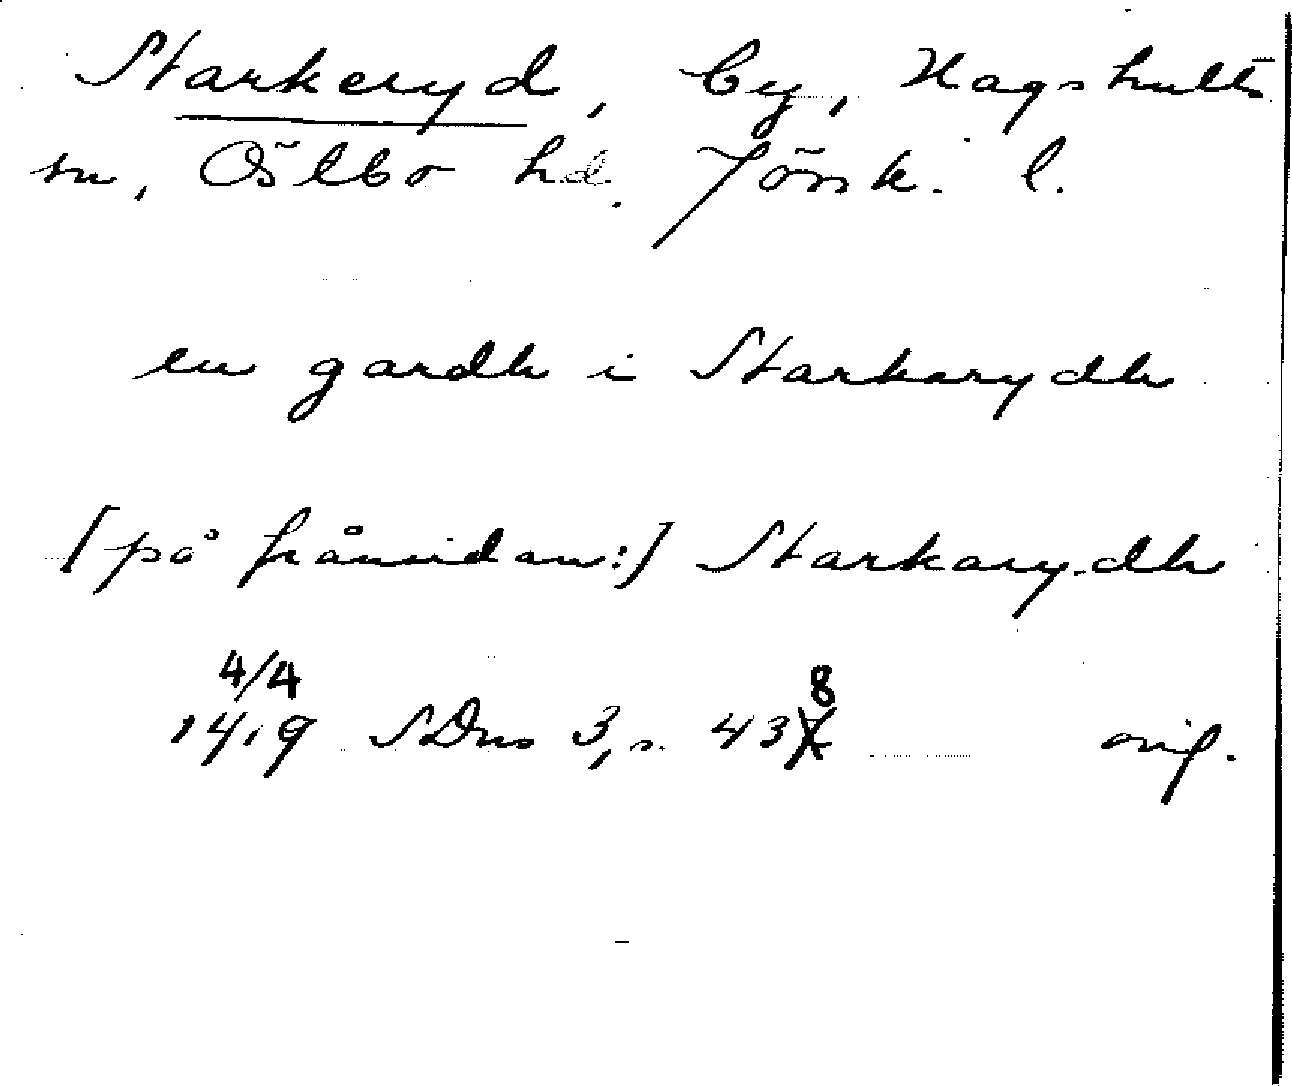 Starkeryd, by, Hagshults
sn, Östbo hd. Jönk. l.
en gardh i Starkarydh
[på frånsidan:] Starkarydh
4/4
1419 SDns 3, s. 438 orig.